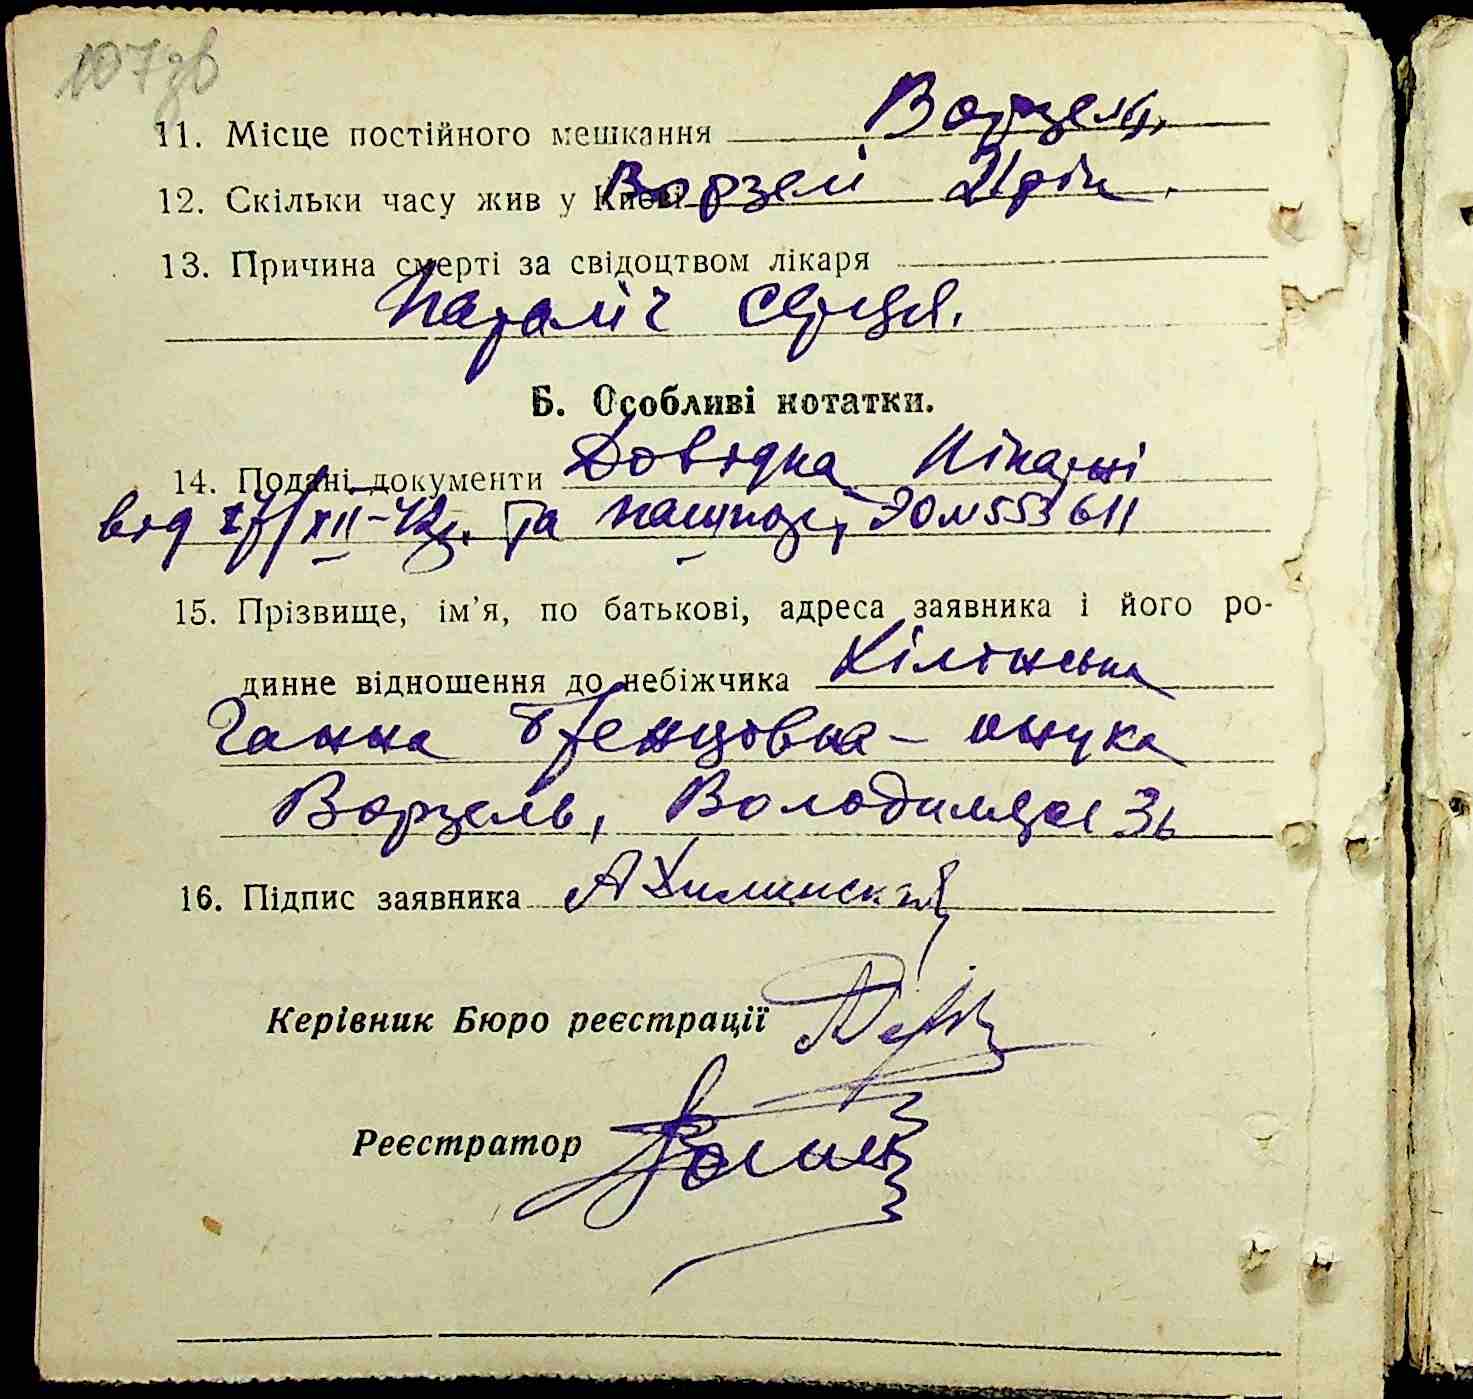 107 зв
11. Місце постійного мешкання Ворзель,
12. Скільки часу жив у Києві Ворзелі
13. Причина смерті за свідоцтвом лікаря
Параліч серця.
Б. Особливі нотатки.
14. Подані документи Довідка лікарні
від 17/XII-42р. та пашпорт, ЭО№553611
15. Прізвище, ім'я, по батькові, адреса заявника і його ро-
динне відношення до небіжчика Хілінська
Ганна онука
Ворзель, Володимирська
16. Підпис заявника А Хилинская
Керівник Бюро реєстрації
Реєстратор